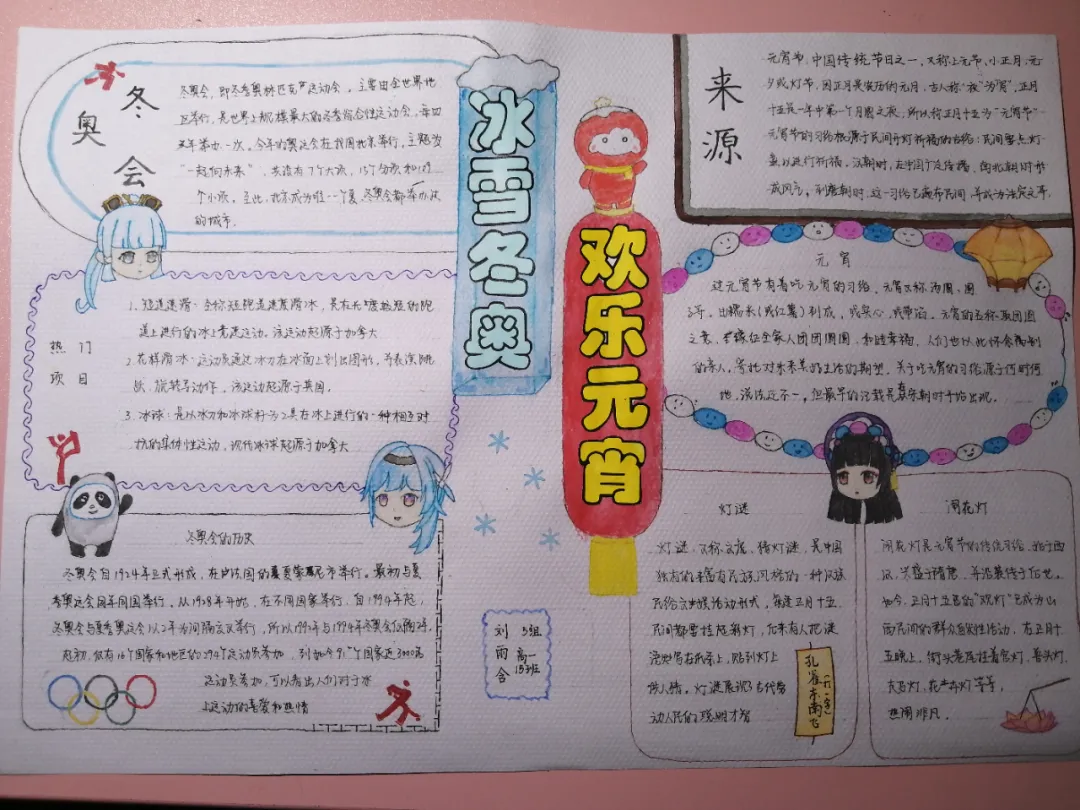 冬奥会
冬奥会,即冬季奥林匹克运动会。主要由全世界地
区举行,是世界上规模最大的冬季综合性运动会,每四
年举办一次。今年的奥运会在我国北京举行,主题为
"一起向未来"。共设有7个大项,15个分项和109
个小项。至此,北京成为唯一一个夏、冬奥会都举办过
的城市。
冰雪冬奥
热门
项目
1. 短道速滑:全称短跑道速度滑冰,是在长度较短的跑
道上进行的冰上竞速运动。该运动起源于加拿大
2. 花样滑冰:运动员通过冰刀在冰面上划出图形,并表演跳
跃、旋转等动作,该运动起源于英国。
3. 冰球:是以冰刀和冰球杆为工具在冰上进行的一种相互对
抗的集体性运动,现代冰球起源于加拿大
冬奥会的历史
冬奥会自1924年正式形成,在卢法国的夏夏蒙尼市举行。最初与夏
季奥运会同年同国举行,从1928年开始,在不同国家举行,自1994年起,
冬奥会与夏季奥运会以2年为间隔交叉举行,所以1992年与1994年冬奥会仅隔2年。
起初,仅有16个国家和地区的294个运动员参加,到如今91个国家近3000名
运动员参加,可以看出人们对于冰
上运动的喜爱和热情
刘雨含
5组
高一
153班
欢乐元宵
来源
元宵节,中国传统节日之一,又称上元节、小正月、元
夕或灯节,因正月是农历的元月,古人称"夜"为"宵",正月
十五是一年中第一个月圆之夜,所以称正月十五为"元宵节"
元宵节的习俗根源于民间开灯祈福的古俗:民间要点灯
盏以进行祈福。汉朝时,在中国广泛传播,南北朝时形
成风气。到唐朝时,这一习俗已遍布民间,并成为法定之事。
元宵
这元宵节有着吃元宵的习俗。元宵又称汤圆、圆
子,由糯米(或红薯)制成,或实心,或带馅。元宵的名称取团圆
之意,象征在全家人团团圆圆,和睦幸福,人们也以此怀念离别
的亲人,寄托对未来美好生活的期望。关于吃元宵的习俗源于何时何
地,说法不一,但最早的记载是在宋朝时开始出现。
灯谜
灯谜,又称文虎,猜灯谜,是中国
独有的来富有民族风格的一种汉族
民俗文娱活动形式,每逢正月十五
民间都要挂起彩灯,后来有人把谜
语写在纸条上,贴到灯上
供人猜。灯谜展现了古代劳
动人民的聪明才智
孔雀东南飞
(打一字)
闹花灯
闹花灯是元宵节的传统习俗,始于西
汉,兴盛于隋唐,并沿袭传于后世。
如今,正月十五员的"观灯"已成为山
西民间的群众娱乐性活动,在正月十
五晚上,街头巷尾挂着宫灯、兽头灯、
走马灯,花卉灯等等,
热闹非凡。